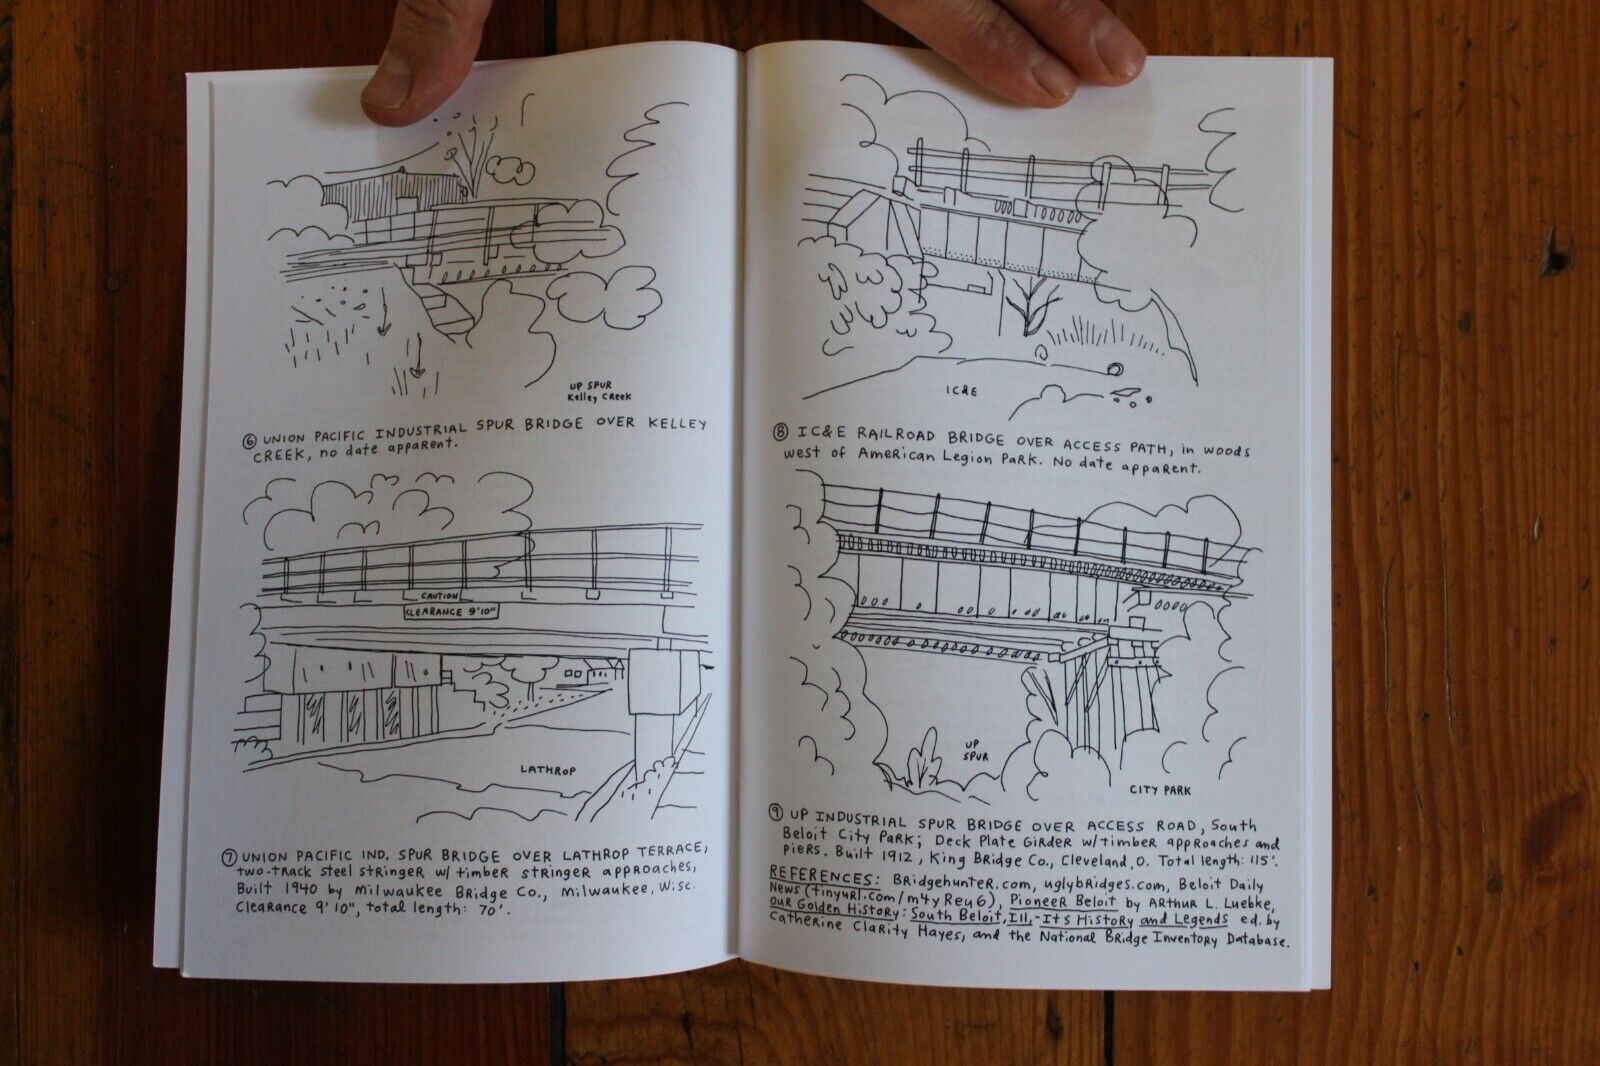 UP SPUR
Kelley CReek
⑥ UNION PACIFIC INDUSTRIAL SPUR BRIDGE OVER KELLEY
CREEK, no date apparent.
CAUTION
CLEARANCE 9'10"
LATHROP
⑦ UNION PACIFIC IND. SPUR BRIDGE OVER LATHROP TERRACE,
two-track steel stringer w/ timber stringer approaches,
Built 1940 by Milwaukee Bridge Co., Milwaukee, Wisc.
Clearance 9'10", total length: 70'.
IC&E
⑧ IC&E RAILROAD BRIDGE OVER ACCESS PATH, in woods
west of American Legion Park. No date apparent.
UP
SPUR
CITY PARK
⑨ UP INDUSTRIAL SPUR BRIDGE OVER ACCESS ROAD, South
Beloit City Park; Deck Plate Girder w/timber approaches and
piers. Built 1912, King Bridge Co., Cleveland, O. Total length: 115'.
REFERENCES: Bridgehunter.com, uglybridges.com, Beloit Daily
News (tinyurl.com/m4yReu6), Pioneer Beloit by Arthur L. Luebke,
Our Golden History: South Beloit, Ill,-Its History and Legends ed. by
Catherine Clarity Hayes, and the National Bridge Inventory Database.